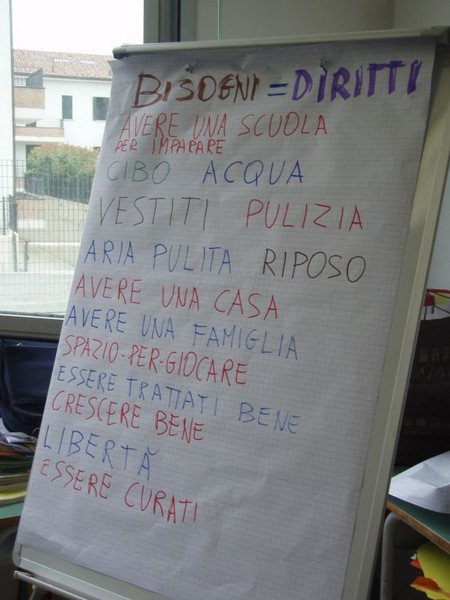 BISOGNI = DIRITTI
AVERE UNA SCUOLA
PER IMPARARE
CIBO ACQUA
VESTITI PULIZIA
ARIA PULITA RIPOSO
AVERE UNA CASA
AVERE UNA FAMIGLIA
SPAZIO-PER-GIOCARE
ESSERE TRATTATI BENE
CRESCERE BENE
LIBERTÀ
ESSERE CURATI